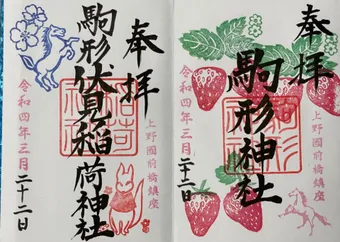 奉拝
駒形伏見稲荷神社
令和四年三月二十二日
上野國前橋鎮座
奉拝
駒形神社
令和四年三月二十二日
上野國前橋鎮座